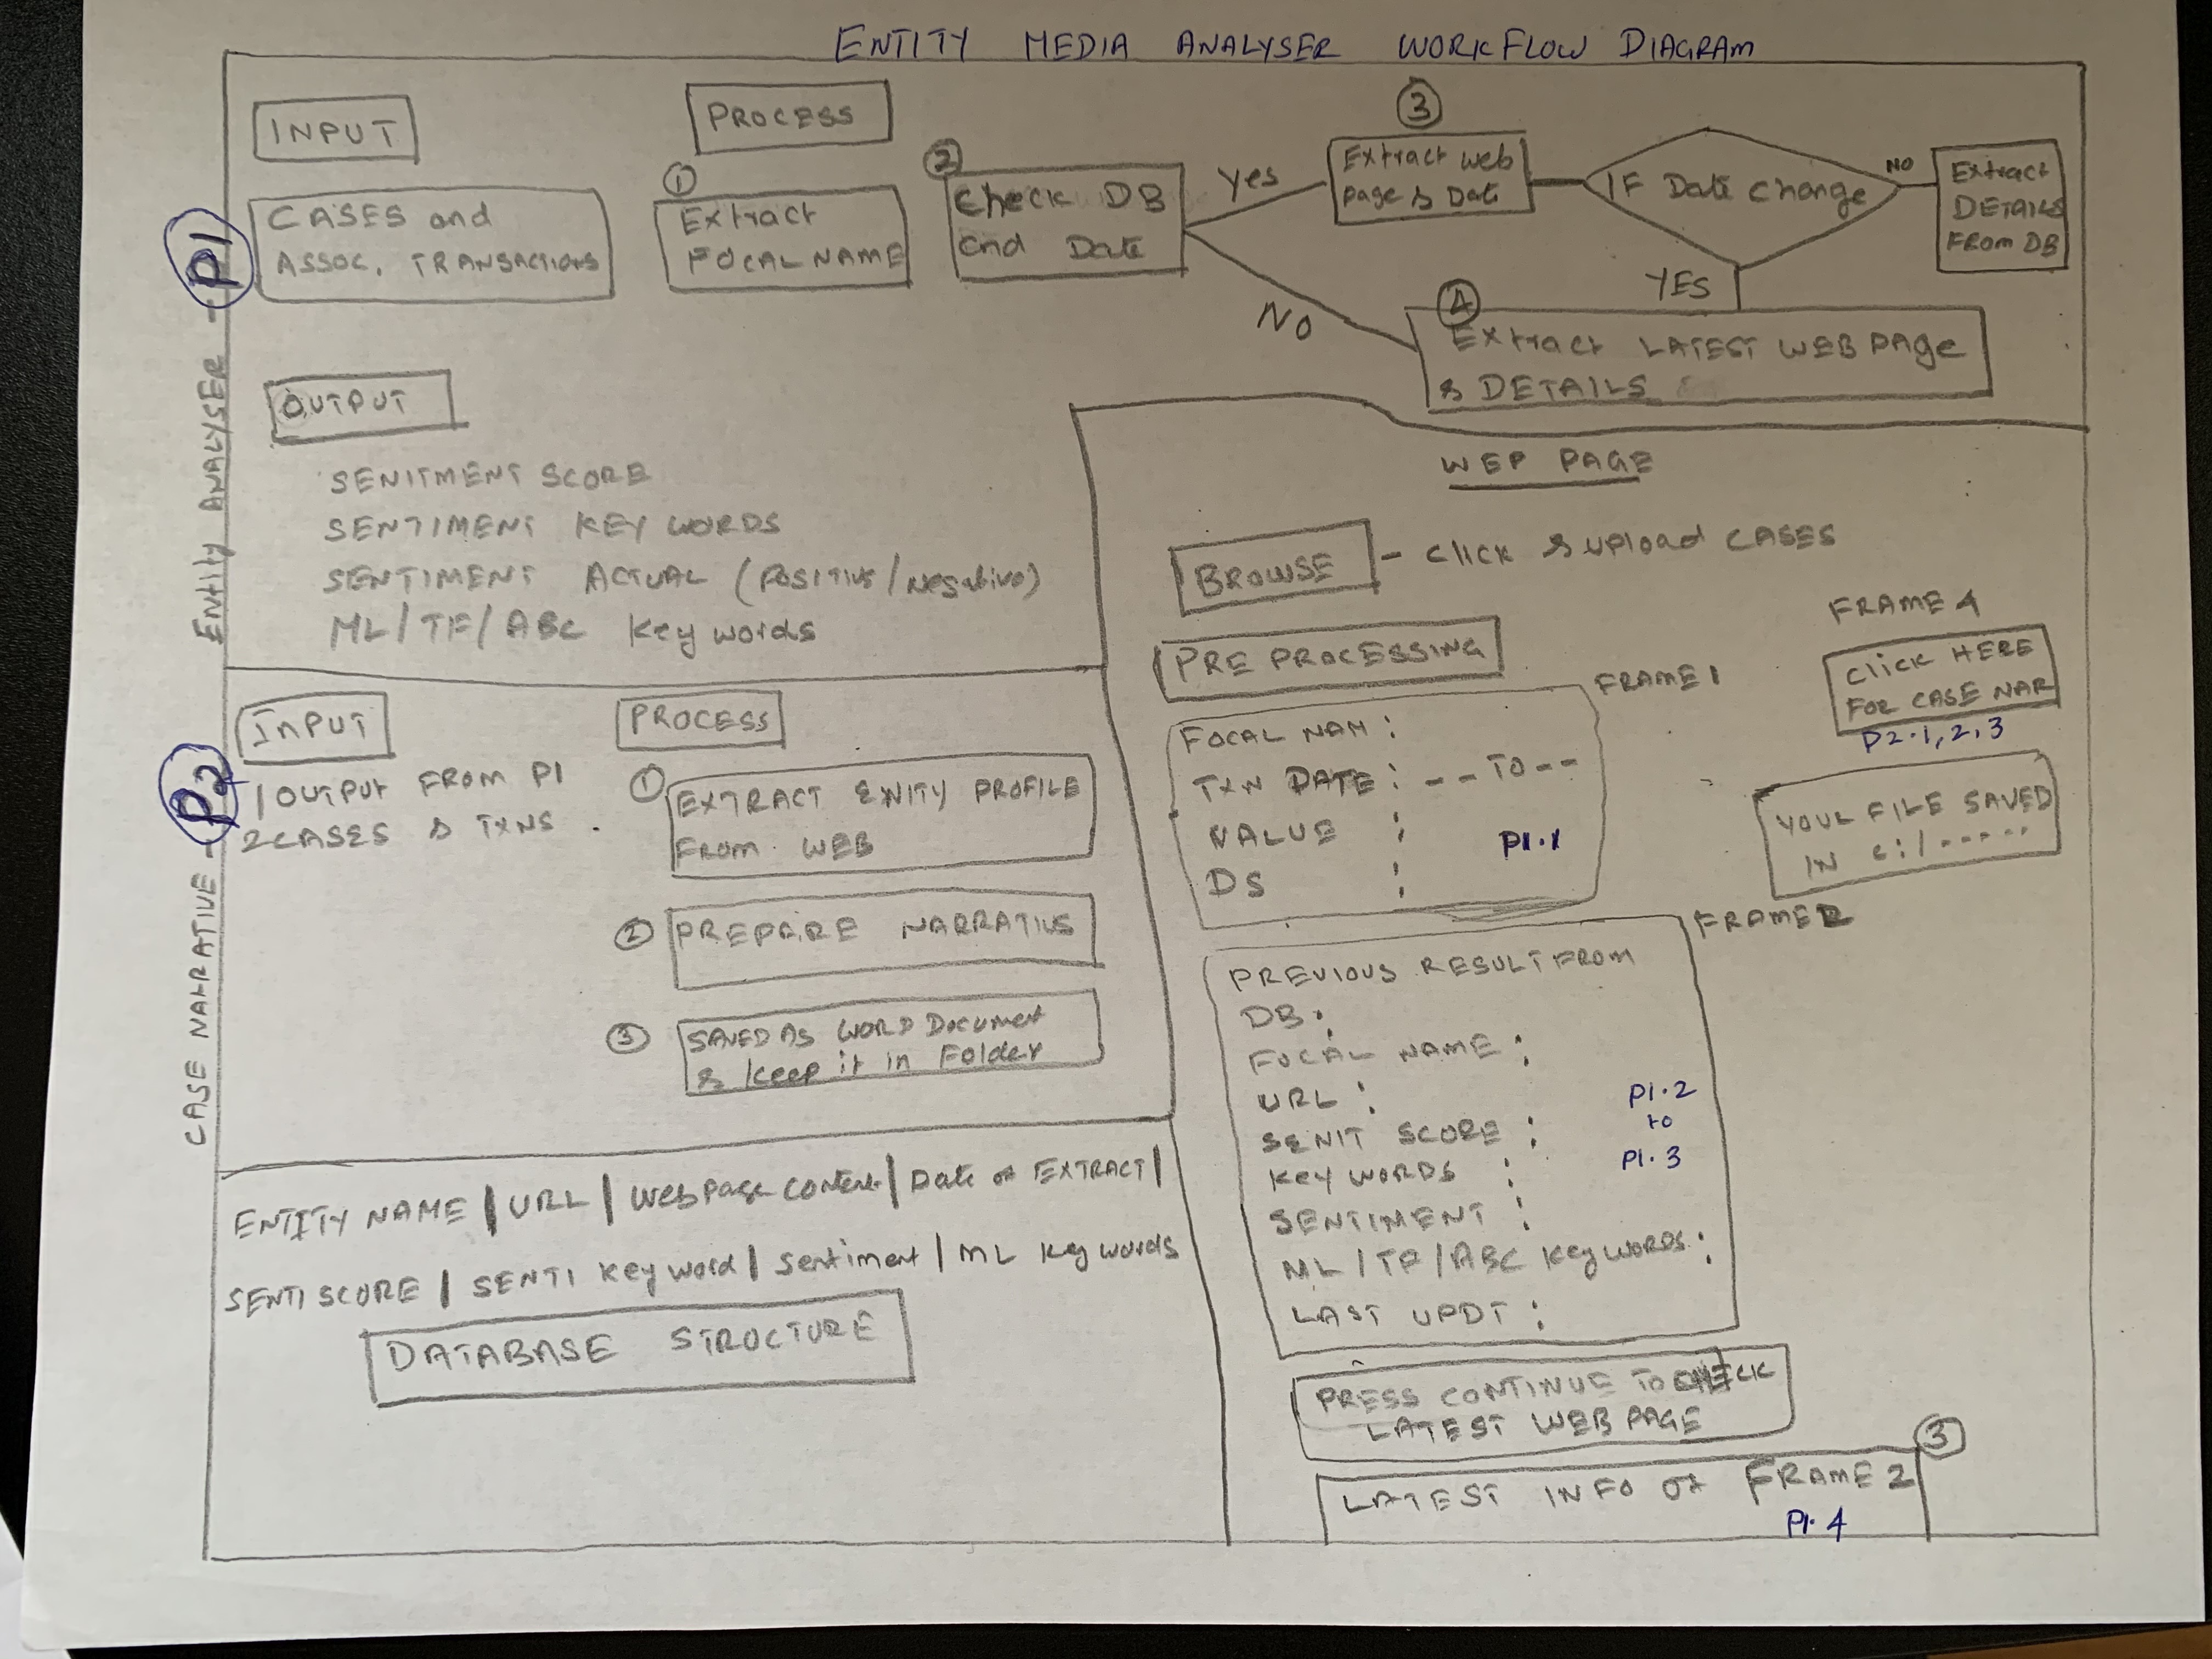 ENTITY MEDIA ANALYSER WORKFLOW DIAGRAM
P1
ENtity ANALYSER -
INPUT
CASES and
ASSOC. TRANSACTIONS
PROCESS
1
Extract
FOCAL NAME
2
Check DB
and Date
Yes
NO
3
Extract web
page & Date
IF Date Change
NO
Extract
DETAILS
FROM DB
YES
4
Extract LATEST WEB PAge
& DETAILS
OUTPUT
SENITMENT SCORE
SENTIMENT KEY WORDS
SENTIMENT ACTUAL (POSITIVE/Negative)
ML/TF/ABC Key words
P2
CASE NARRATIVE -
INPUT
1 OUTPUT FROM P1
2 CASES & TXNS.
PROCESS
1
EXTRACT ENITY PROFILE
FROM WEB
2
PREPARE NARRATIVE
3
SAVED AS WORD Document
& keep it in Folder
ENTITY NAME | URL | Web page content | Date of EXTRACT |
SENTI SCORE | SENTI Key word | Sentiment | ML Key words
DATABASE STRUCTURE
WEP PAGE
BROWSE
- click & upload CASES
PRE PROCESSING
FRAME 1
FOCAL NAM :
TXN DATE : -- TO --
VALUE :
DS :
P1.1
FRAME 4
Click HERE
FOR CASE NAR
P2.1,2,3
YOUR FILE SAVED
IN c:/-----
FRAME 2
PREVIOUS RESULT FROM
DB:
FOCAL NAME :
URL :
SENIT SCORE :
Key WORDS :
SENTIMENT :
ML/TF/ABC Key WORDS :
LAST UPDT :
P1.2
to
P1.3
PRESS CONTINUE TO CHECK
LATEST WEB PAGE
3
LATEST INFO of FRAME 2
P1.4